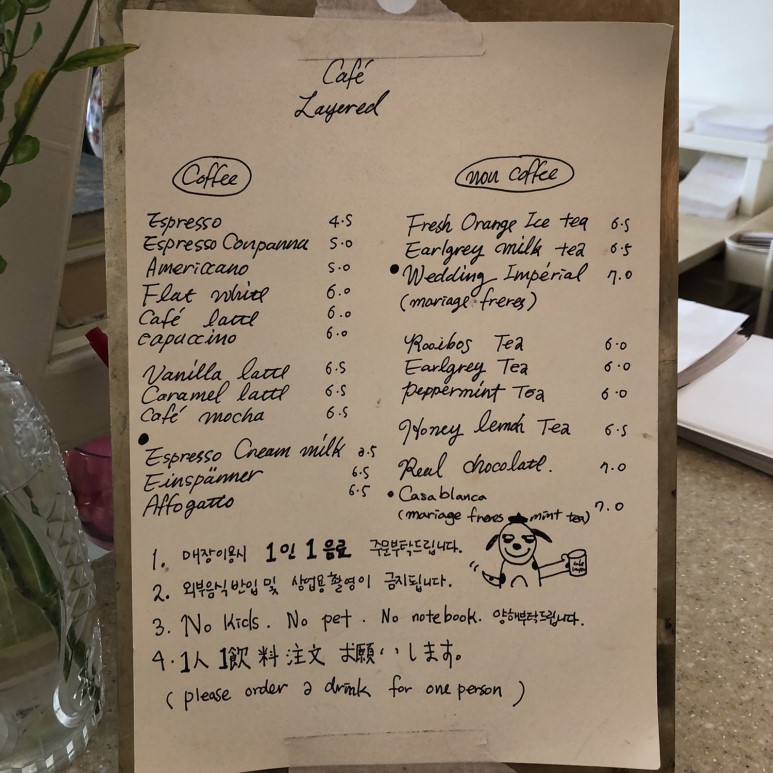 Café
Layered
Coffee
Espresso 4.5
Espresso Conpanna 5.0
Americcano 5.0
Flat white 6.0
Café latte 6.0
capuccino 6.0
Vanilla latte 6.5
Caramel latte 6.5
Café mocha 6.5
Espresso Cream milk 2.5
Einspänner 6.5
Affogatto 6.5
non coffee
Fresh Orange Ice tea 6.5
Earlgrey milk tea 6.5
Wedding Impérial 7.0
(mariage freres)
Rooibos Tea 6.0
Earlgrey Tea 6.0
Peppermint Tea 6.0
Honey lemon Tea 6.5
Real chocolate. 7.0
Casablanca
(mariage freres mint tea) 7.0
1. 매장이용시 1인 1음료 주문부탁드립니다.
2. 외부음식 반입 및 상업용 촬영이 금지됩니다.
3. No kids. No pet. No notebook. 양해부탁드립니다.
4. 1人 1飲料 注文 お願いします。
(please order a drink for one person)